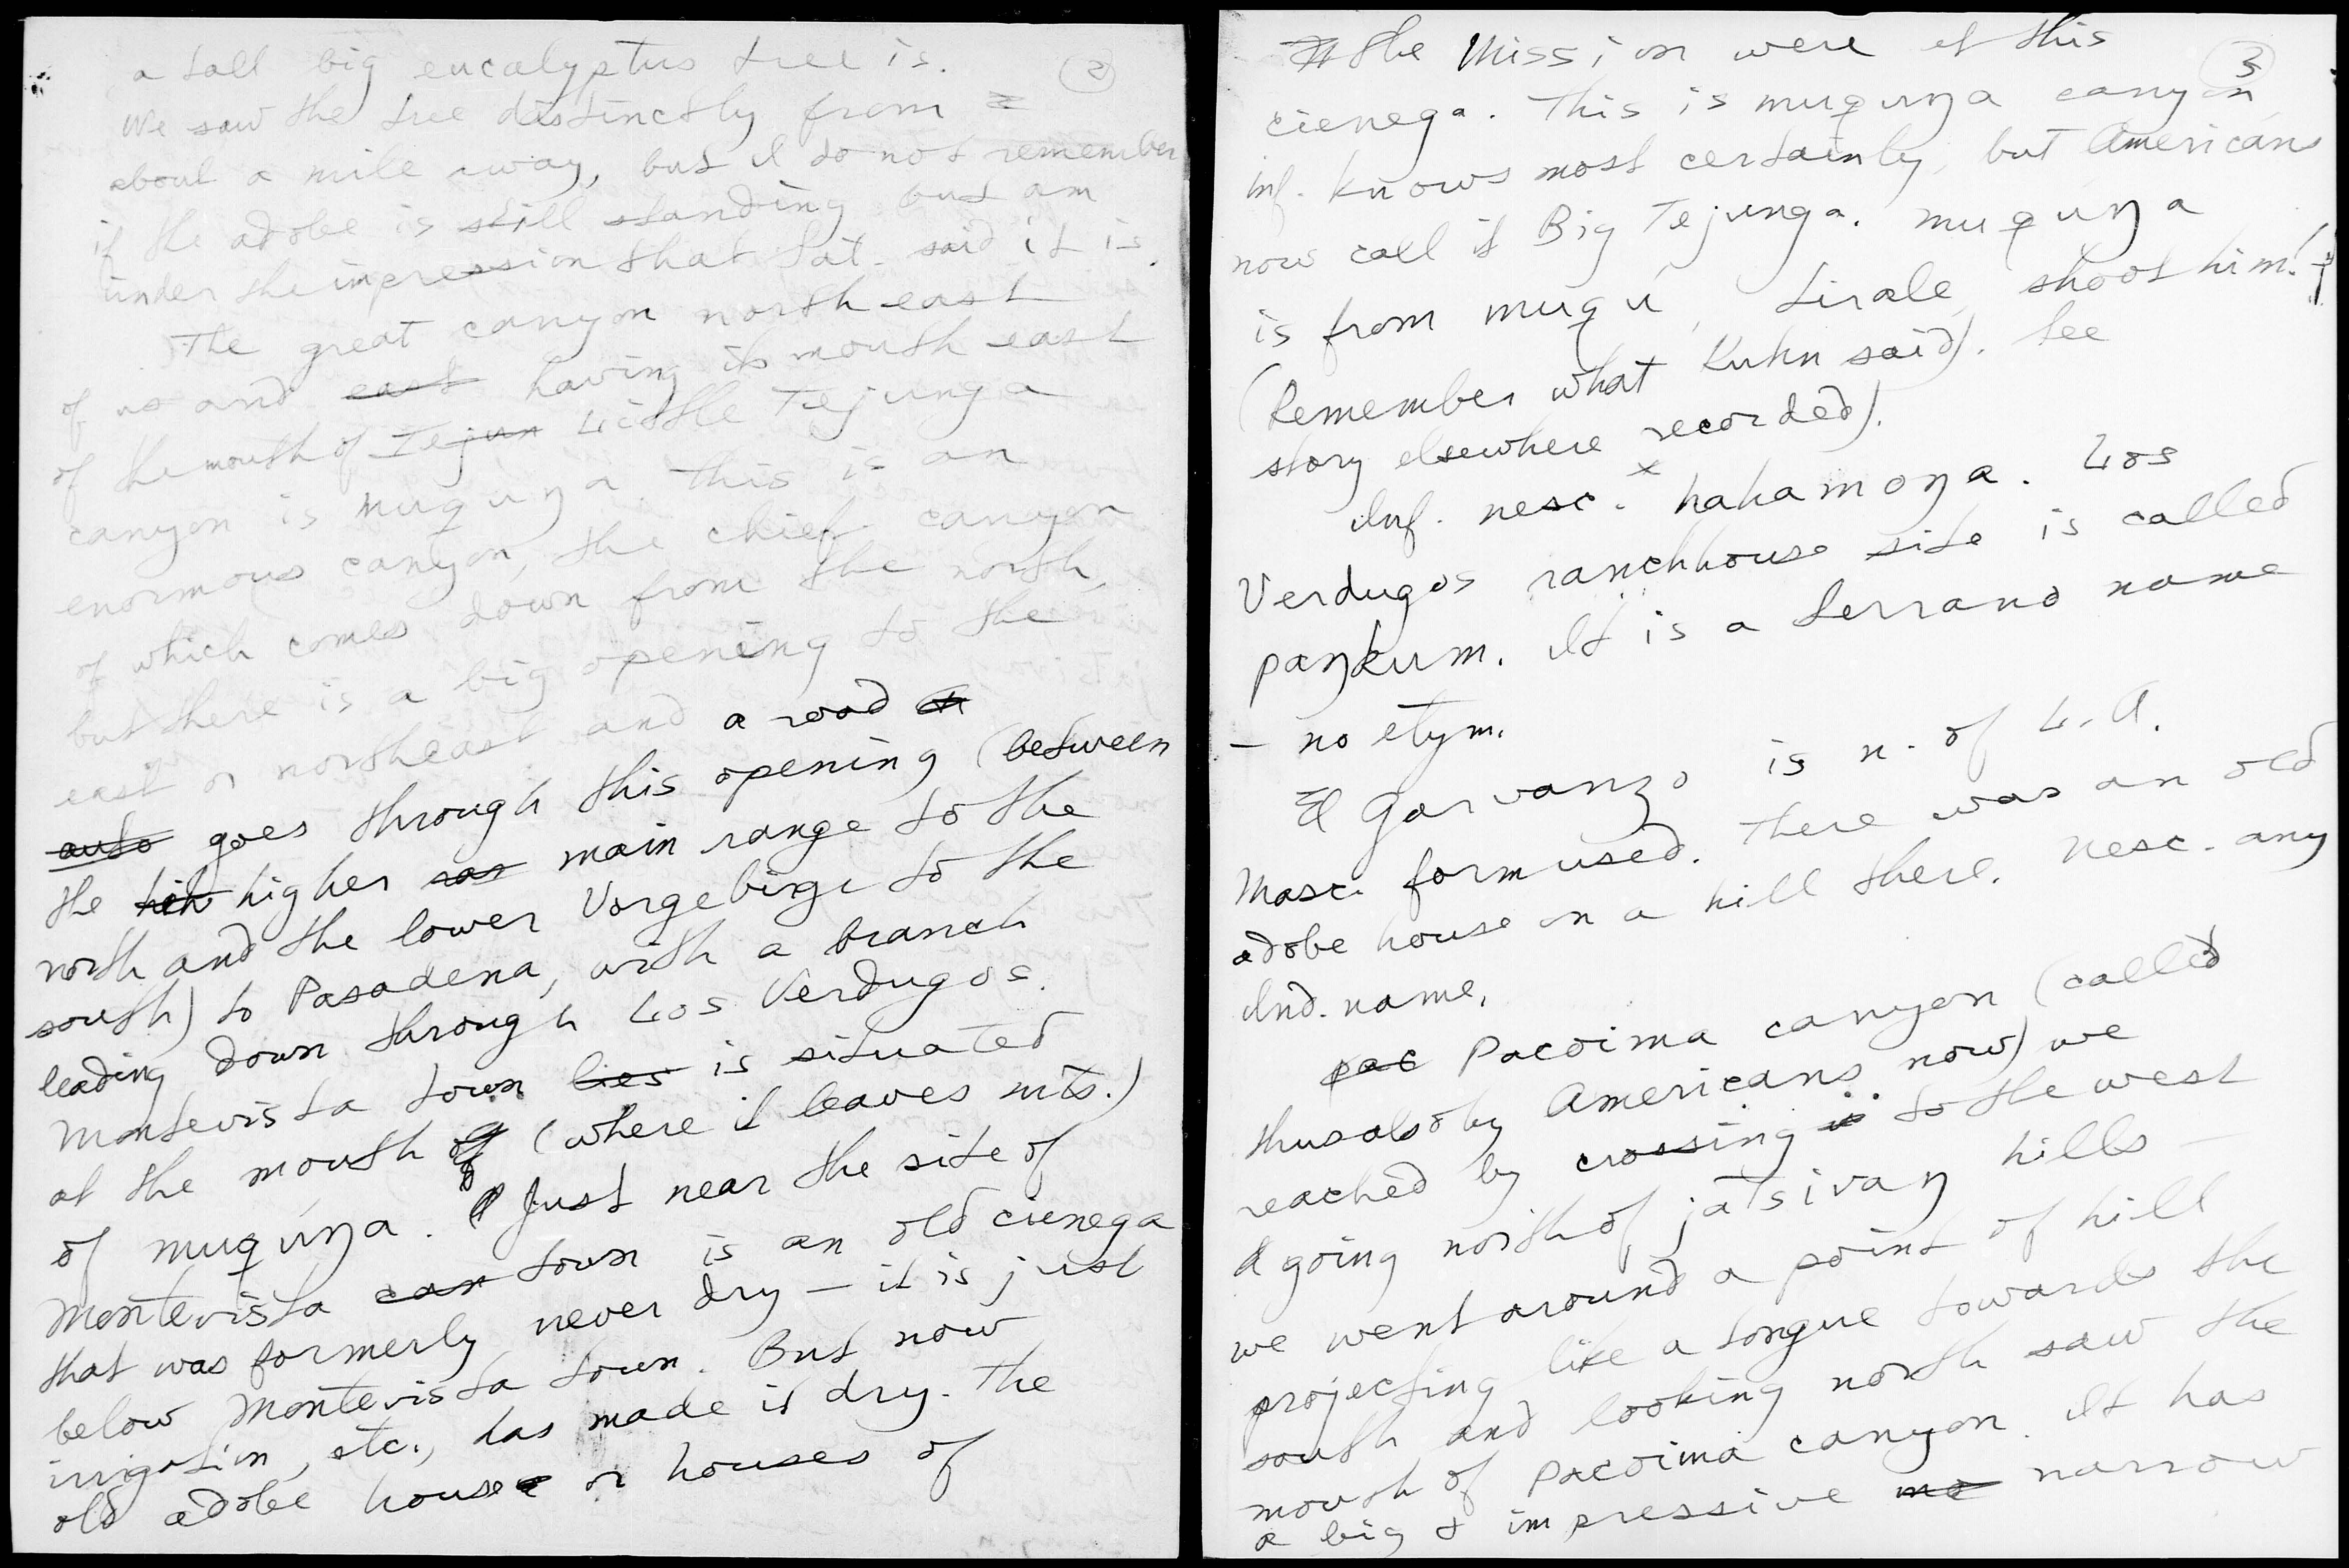 a tall big eucalyptus tree is.
(2)
We saw the tree distinctly from
about a mile away, but I do not remember
if the adobe is still standing but am
under the impression that Sat. said it is.
The great canyon north east
of us and east having its mouth east
of the mouth of Tejun Little Tejunga
canyon is muqúŋa. This is an
enormous canyon, the chief canyon
of which comes down from the north,
but there is a big opening to the
east or northeast and a road
auto goes through this opening (between
the hih higher ran main range to the
north and the lower Vorgebirge to the
south) to Pasadena, with a branch
leading down through Los Verdugos.
Montevista town lies is situated
at the mouth of (where it leaves mts.)
of muqúŋa. Just near the site of
Montevista can town is an old cienega
that was formerly never dry — it is just
below Montevista town. But now
irrigation, etc., has made it dry. The
old adobe house or houses of
the Mission were at this
(3)
cienega. This is muqúŋa canyon
inf. knows most certainly, but Americans
now call it Big Tejunga. muqúŋa
is from muqú, tirale, shoot him!
(Remember what Kuhn said). See
story elsewhere recorded).
Inf. nesc. x hahamoŋa. Los
Verdugos ranchhouse site is called
paŋkum. It is a Serrano name
— no etym.
El Garvanzo is n. of L.A.
Masc. form used. There was an old
adobe house on a hill there. Nesc. any
Ind. name.
pac Pacoima canyon (called
thus also by Americans now) we
reached by crossing to the west
& going north of ja'tsivaŋ hills —
we went around a point of hill
projecting like a tongue towards the
south and looking north saw the
mouth of Pacoima canyon. It has
a big & impressive mo narrow